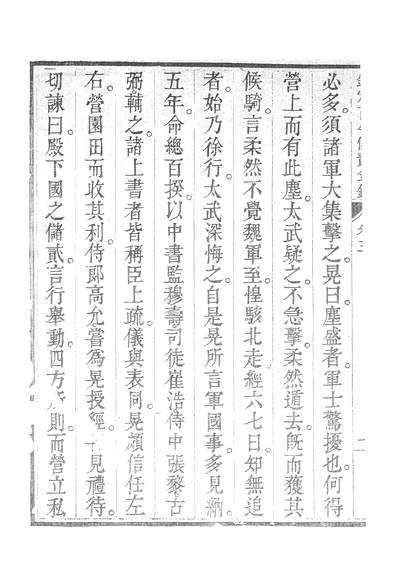 必多須諸軍大集擊之。晃曰。塵盛者。軍士驚擾也。何得
營上而有此塵。太武疑之。不急擊。柔然遁去。旣而獲其
候騎。言柔然不覺魏軍至。惶駭北走。經六七日。知無追
者。始乃徐行。太武深悔之。自是晃所言軍國事。多見納。
五年。命總百揆。以中書監穆壽司徒崔浩侍中張黎古
弼輔之。諸上書者皆稱臣。上疏儀與表同。晃頗信任左
右。營園田而收其利。侍郞高允嘗爲晃授經。見禮待。
切諫曰。殿下國之儲貳。言行舉動。四方所則。而營立私